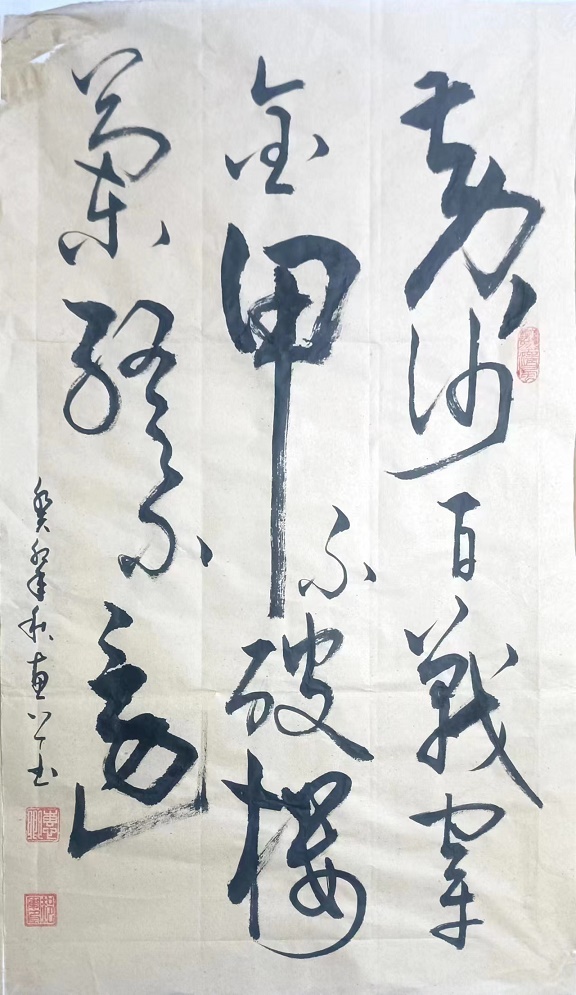 黄沙百戰穿
金甲不破樓
蘭終不還
癸秋书